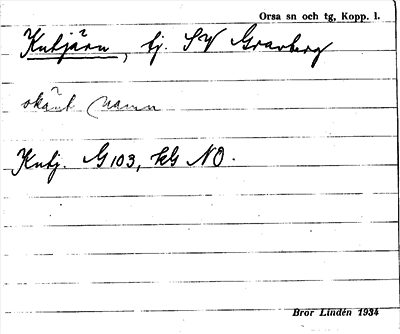 Orsa sn och tg, Kopp. l.
Kutjärn, tj. SV Gravberg
okänt namn
Kutj. G 103, kG NO.
Bror Lindén 1934